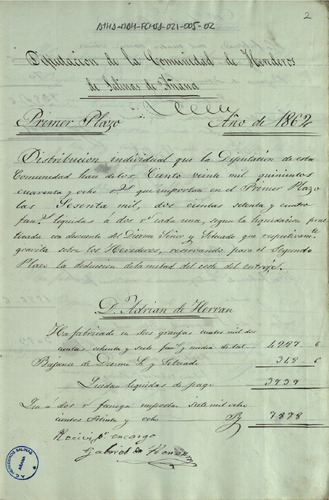 ATHA-DAH-FCHSA-021-005-02
2
Diputacion de la Comunidad de Herederos
de Salinas de Añana
Primer Plazo Año de 1862
Distribucion individual que la Diputacion de esta
Comunidad hace de los Ciento veinte mil quinientos
cuarenta y ocho rs que importan en el Primer Plazo
las Sesenta mil, dos cientas setenta y cuatro
fans liquidas á dos rs cada una, segun la liquidacion prac
ticada con descuento del Diezmo Señor y Solaado que respectivamte
gravita sobre los Herederos, reservando para el Segundo
Plazo la deduccion de la mitad del coste del entroje.
D. Adrian de Herran
Ha fabricado en sus granjas cuatro mil dos
cientas ochenta y siete fans y media de sal 4287 6
Bajanse de Diezmo S. y Solaado 348 6
Quedan liquidas de pago 3939
Que á dos rs fanega importan siete mil ocho
cientos setenta y ocho 7878
Recivi, pr encargo
Gabriel de
A.C. SALINAS
AÑANA